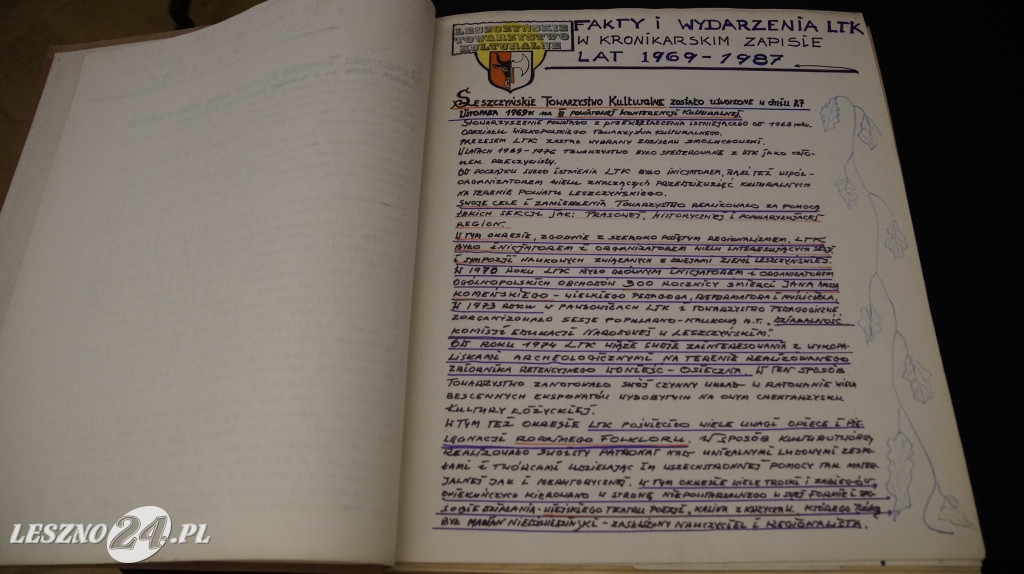 LESZCZYŃSKIE
TOWARZYSTWO
KULTURALNE
FAKTY i WYDARZENIA LTK
W KRONIKARSKIM ZAPISIE
LAT 1969-1987
LESZCZYŃSKIE TOWARZYSTWO KULTURALNE ZOSTAŁO UTWORZONE W DNIU 27
LISTOPADA 1969R NA III POWIATOWEJ KONFERENCJI KULTURALNEJ.
STOWARZYSZENIE POWSTAŁO Z PRZEKSZTAŁCENIA ISTNIEJĄCEGO OD 1963 ROKU
ODDZIAŁU WIELKOPOLSKIEGO TOWARZYSTWA KULTURALNEGO.
PREZESEM LTK ZOSTAŁ WYBRANY ZDZISŁAW SMOLUCHOWSKI.
W LATACH 1969-1976 TOWARZYSTWO BYŁO Z LTK JAKO CZŁO-
NEK RZECZYWISTY.
OD POCZĄTKU SWEGO ISTNIENIA LTK BYŁO INICJATOREM, BĄDŹ TEŻ WSPÓŁ-
ORGANIZATOREM WIELU ZNACZĄCYCH PRZEDSIĘWZIĘĆ KULTURALNYCH
NA TERENIE POWIATU LESZCZYŃSKIEGO.
SWOJE CELE I ZAMIERZENIA TOWARZYSTWO REALIZOWAŁO ZA POMOCĄ
TAKICH SEKCJI JAK: PRASOWEJ, HISTORYCZNEJ I POPULARYZUJĄCEJ
REGION.
W TYM OKRESIE, ZGODNIE Z SZEROKO POJĘTYM REGIONALIZMEM, LTK
BYŁO INICJATOREM I ORGANIZATOREM WIELU INTERESUJĄCYCH SESJI
I SYMPOZJI NAUKOWYCH ZWIĄZANYCH Z DZIEJAMI ZIEMI LESZCZYŃSKIEJ.
W 1970 ROKU LTK BYŁO GŁÓWNYM INICJATOREM I ORGANIZATOREM
OGÓLNOPOLSKICH OBCHODÓW 300 ROCZNICY ŚMIERCI JANA AMOSA
KOMEŃSKIEGO - WIELKIEGO PEDAGOGA, REFORMATORA I MYŚLICIELA.
W 1973 ROKU W PAWŁOWICACH LTK I TOWARZYSTWO PEDAGOGICZNE
ZORGANIZOWAŁO SESJĘ POPULARNO-NAUKOWĄ N.T. "DZIAŁALNOŚĆ
KOMISJI EDUKACJI NARODOWEJ W LESZCZYŃSKIEM."
OD ROKU 1974 LTK WIĄŻE SWOJE ZAINTERESOWANIA Z WYKOPA-
LISKAMI ARCHEOLOGICZNYMI NA TERENIE REALIZOWANEGO
ZBIORNIKA RETENCYJNEGO WONIEŚĆ - OSIECZNA. W TEN SPOSÓB
TOWARZYSTWO ZANOTOWAŁO SWÓJ CZYNNY WKŁAD W RATOWANIE WIELU
BESCENNYCH EKSPONATÓW WYDOBYTYCH NA OWYM CMENTARZYSKU
KULTURY ŁÓŻYCKIEJ.
W TYM TEŻ OKRESIE LTK POŚWIĘCIŁO WIELE UWAGI OPIECE I PIE-
LĘGNACJI RODZIMEGO FOLKLORU. W SPOSÓB KULTUROTWÓRCZY
REALIZOWAŁO SWOISTY PATRONAT NAD UNIKALNYMI LUDOWYMI ZESPO-
ŁAMI I TWÓRCAMI UDZIELAJĄC IM WSZECHSTRONNEJ POMOCY TAK MATER-
JALNEJ JAK I MERYTORYCZNEJ. W TYM OKRESIE WIELE TROSKI I ZABIEGÓW
OPIEKUŃCZYCH KIEROWANO W STRONĘ NIEPOWTARZALNEGO W SWEJ FORMIE I SPO-
SOBIE DZIAŁANIA - WIEJSKIEGO TEATRU POEZJI, KALINA Z GARZYNA, KTÓREGO TWÓRCĄ
BYŁ MARIAN NIEDŹWIEDZIŃSKI - ZASŁUŻONY NAUCZYCIEL I REGIONALISTA.
LESZNO24.PL